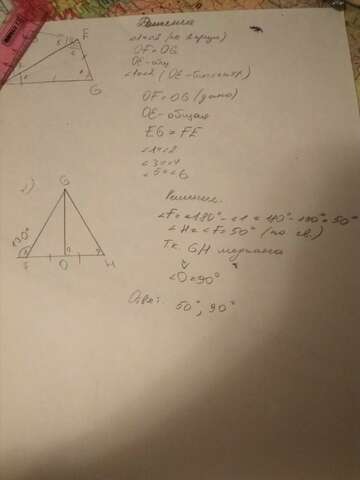 Решение
∠1=∠2 (по
OF=OG
OE-общ
∠1=∠2 (OE-биссект.)
OF=OG (дано)
OE-общая
EG=FE
∠1=∠2
∠3=∠4
∠5=∠6
F
G
2)
G
130°
F
O
H
Решение.
∠F=180°-∠1= 180°-130°=50°
∠H=∠F=50° (по св.)
Тк GH медиана
∠O=90°
Ответ: 50°, 90°